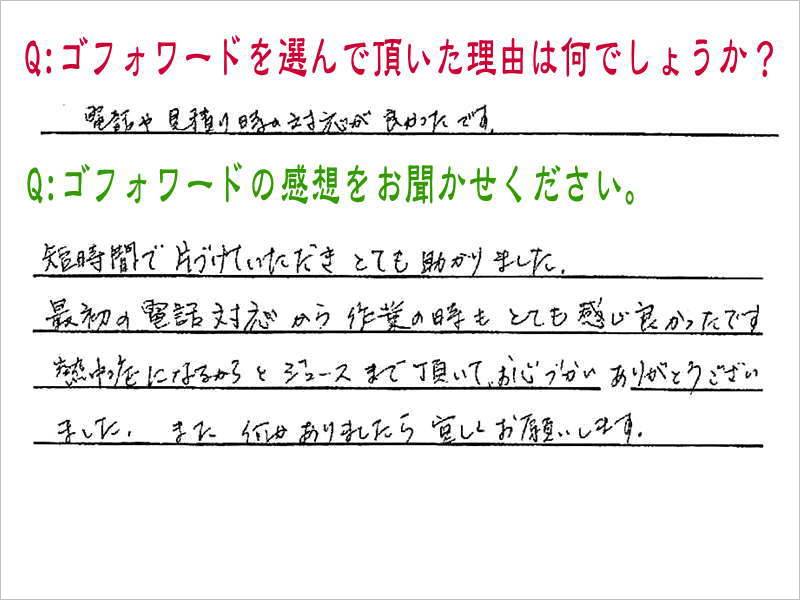 Q:ゴフォワードを選んで頂いた理由は何でしょうか?
電話や見積り時の対応が良かったです。
Q:ゴフォワードの感想をお聞かせください。
短時間で片づけていただきとても助かりました。
最初の電話対応から作業の時もとても感じ良かったです
熱中症になるからとジュースまで頂いて、お心づかいありがとうござい
ました。また何かありましたら宜しくお願いします。